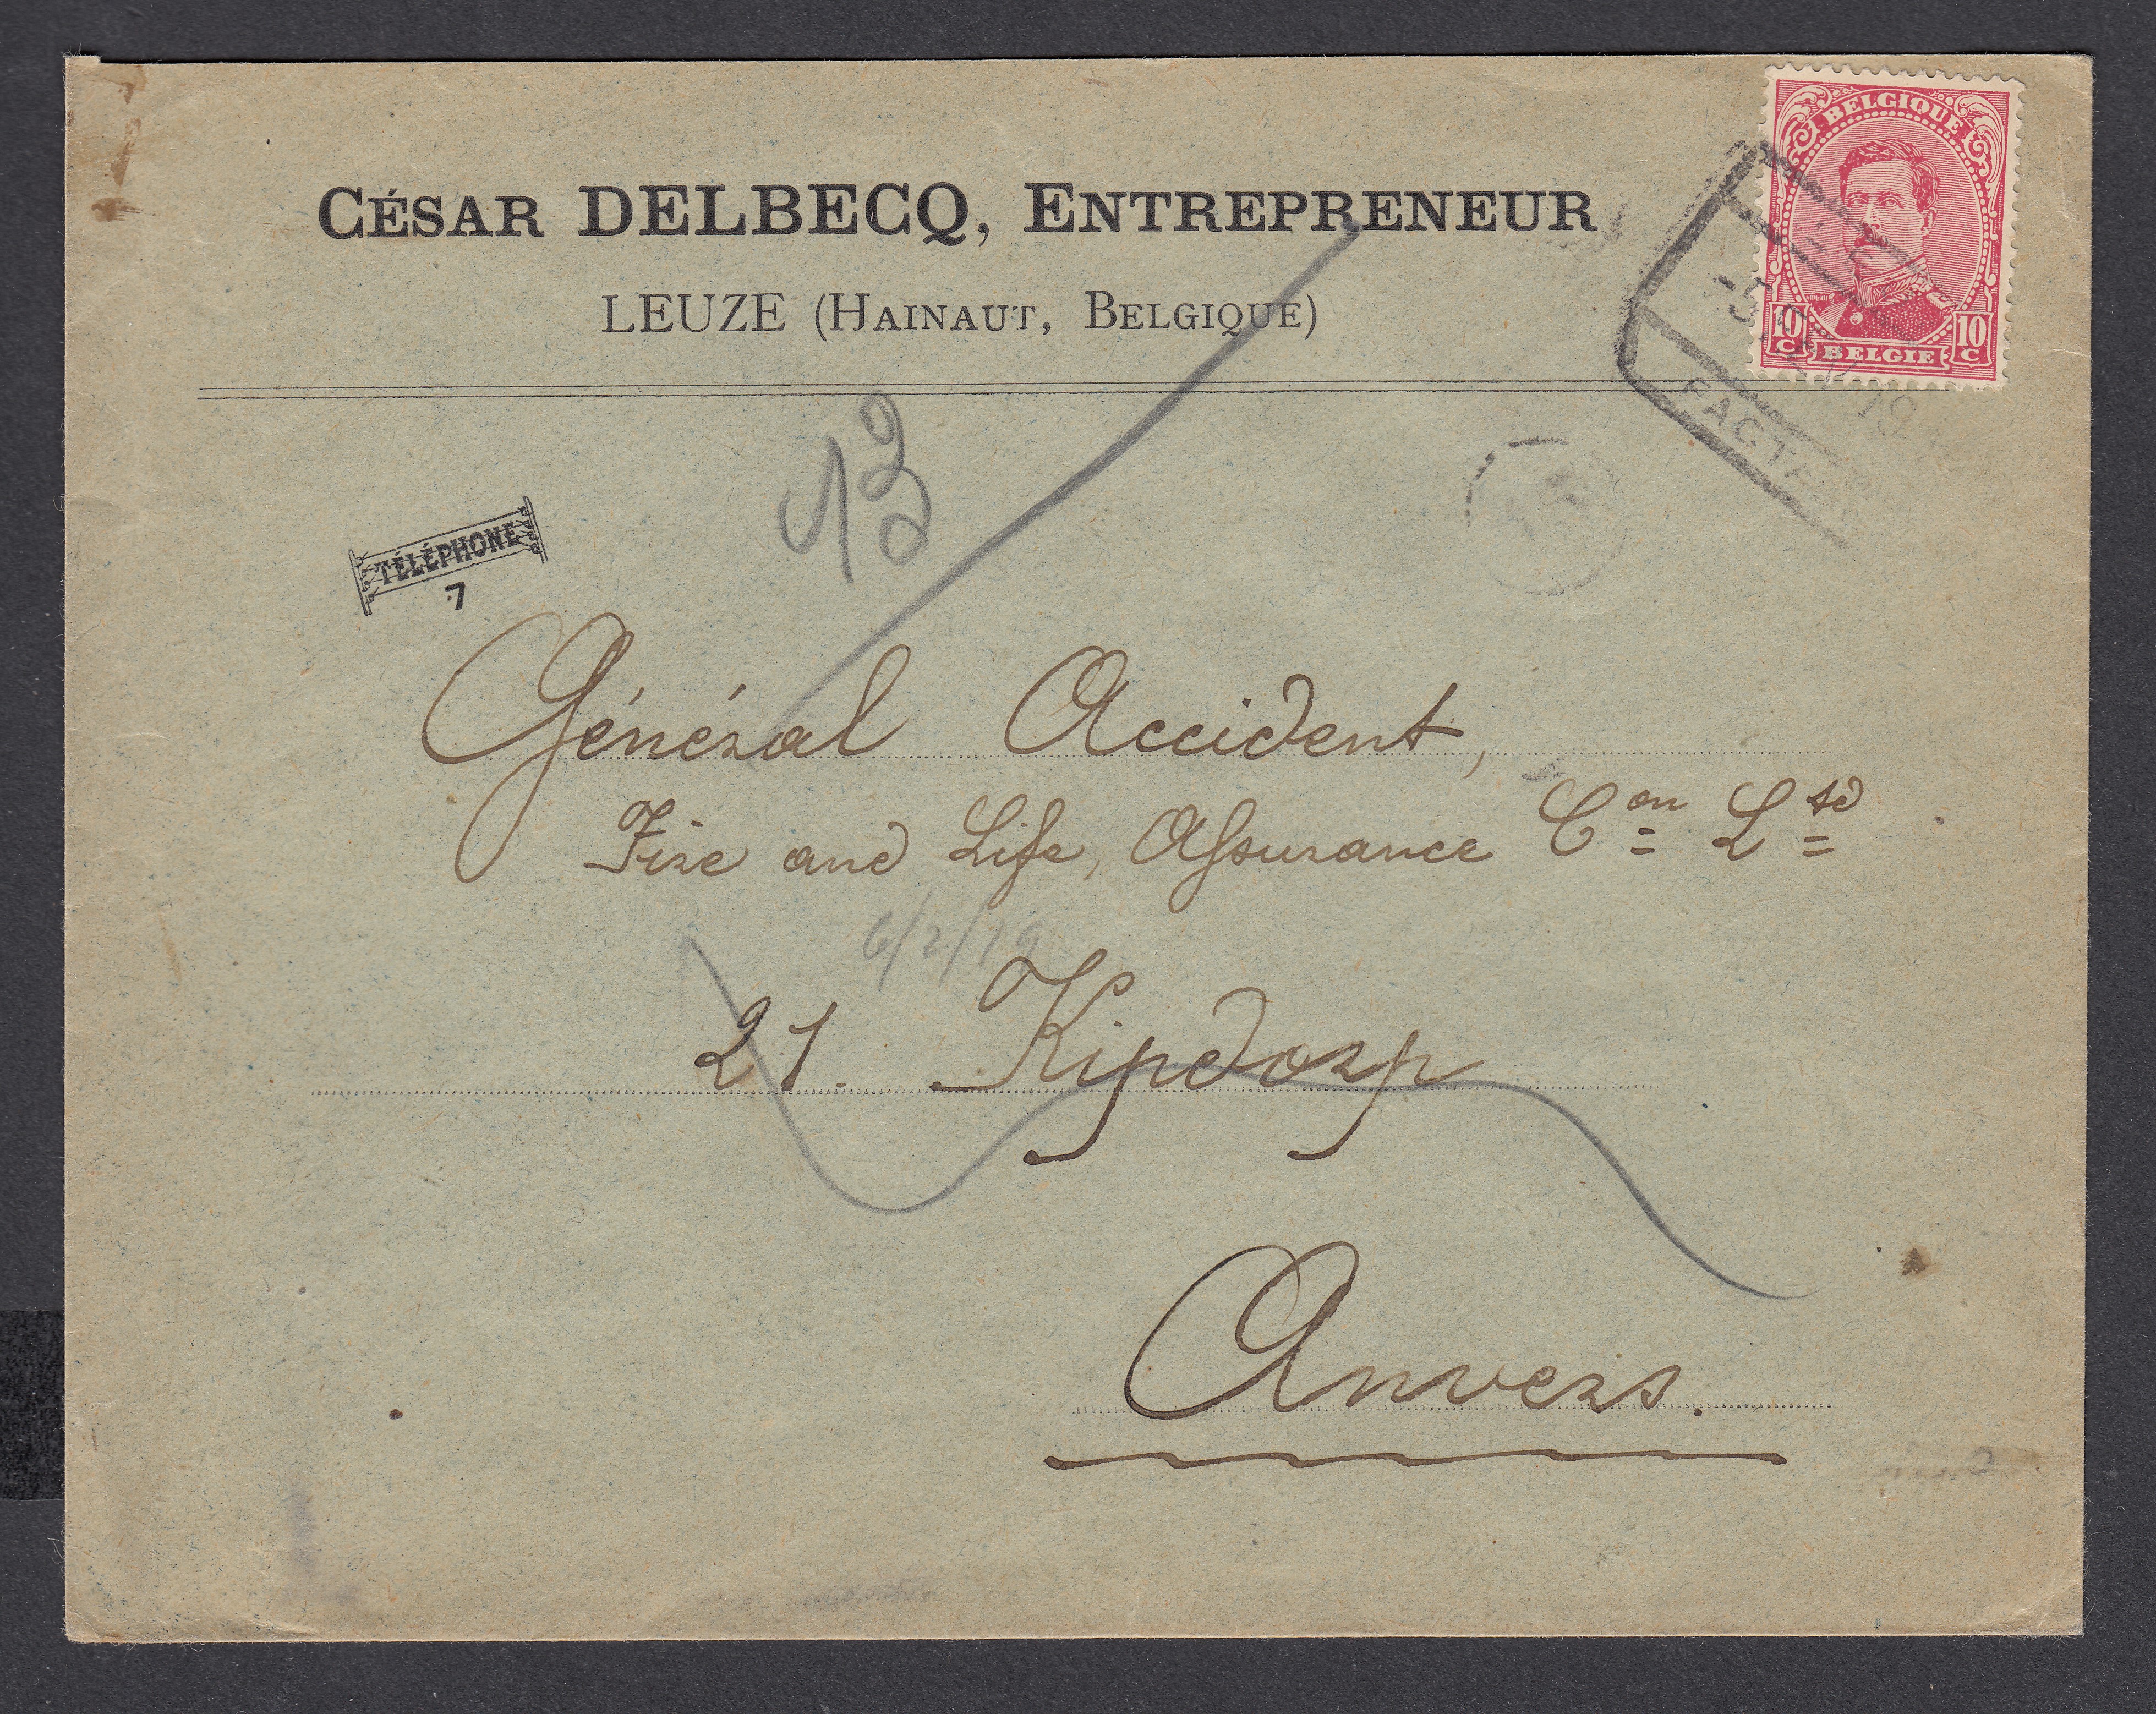 CÉSAR DELBECQ, ENTREPRENEUR
LEUZE (HAINAUT, BELGIQUE)
BELGIQUE
10 C BELGIE 10 C
13
TÉLÉPHONE
7
Général Accident,
Fire and Life, Assurance Con Ltd
6/2/19
21. Kipdorp
Anvers.